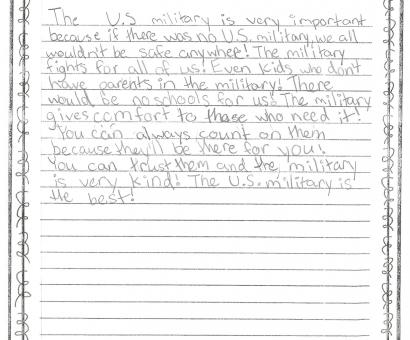 The U.S military is very important
because if there was no U.S. military, we all
wouldn't be safe anywher! The military
fights for all of us! Even kids who don't
have parents in the military! There
would be no schools for us! The military
gives comfort to those who need it!
You can always count on them
because they'll be there for you!
You can trust them and the military
is very kind! The U.S. military is
the best!